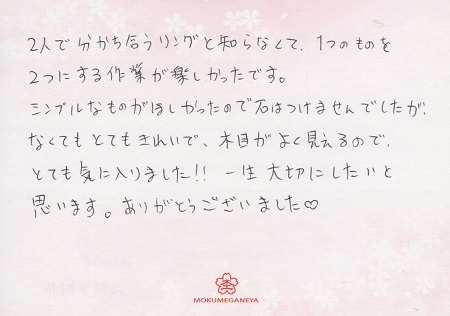 2人で分かち合うリングと知らなくて、1つのものを
2つにする作業が楽しかったです。
シンプルなものがほしかったので石はつけませんでしたが、
なくてもとてもきれいで、木目がよく見えるので、
とても気に入りました!! 一生大切にしたいと
思います。ありがとうございました♡
MOKUMEGANEYA